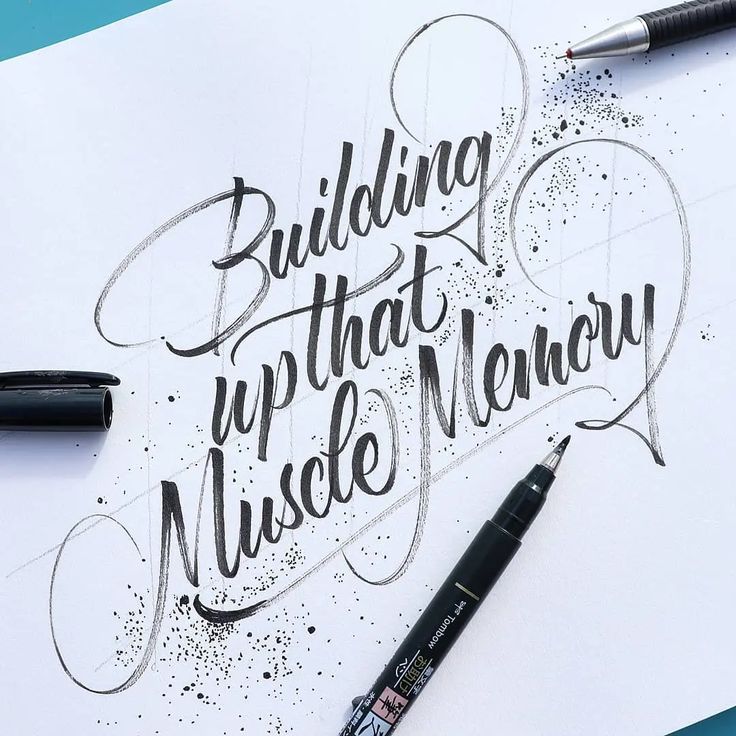 Building
up that
Muscle Memory
Tombow